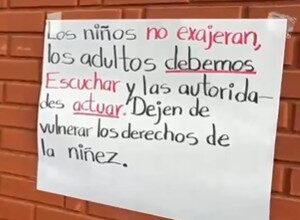 Los niños no exajeran,
los adultos debemos
Escuchar y las autorida-
des actuar. Dejen de
vulnerar los derechos de
la niñez.